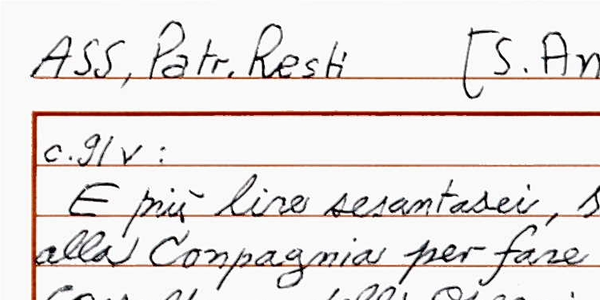 ASS, Patr. Resti [S. An
c. 91 v :
E più lire sesantasei, s
alla Conpagnia per fare